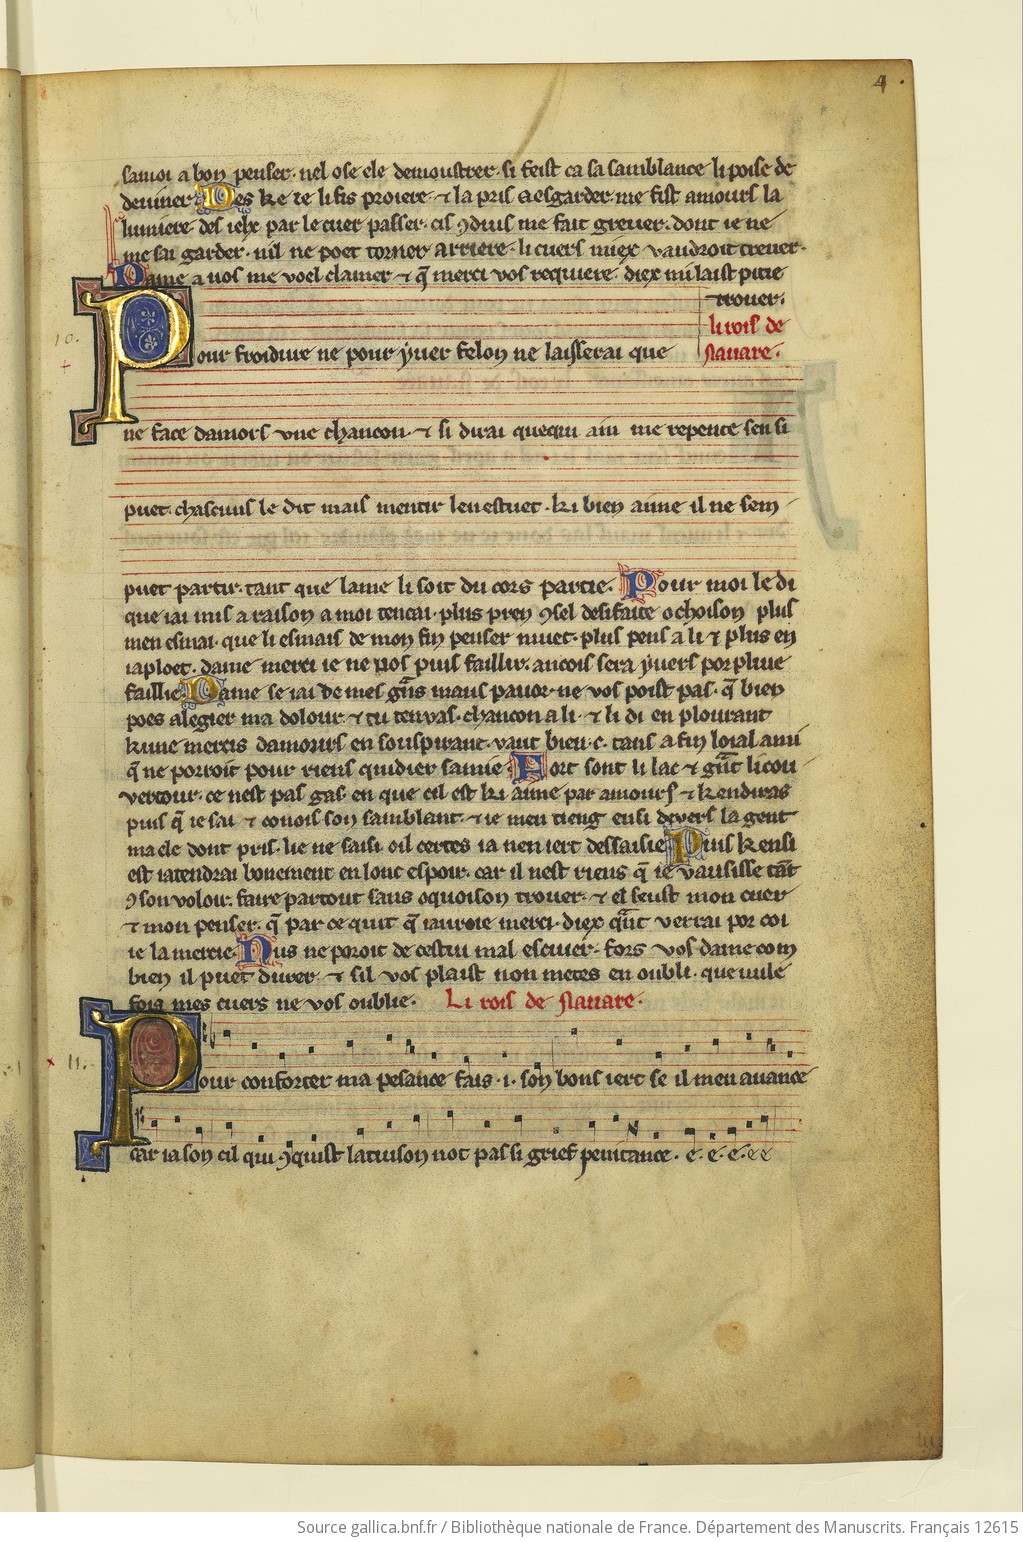 4
samoi a bon penser· nel ose ele demoustrer· si feist ca sa samblance li poise de
deviner· Des ke ie li fis proiere· ⁊ la pris a esgarder· me fist amours la
lumiere· des iehx par le cuer passer· cis ꝯduis me fait grever· dont ie ne
me sai garder· nil ne poet torner arriere· li cuers miex vaudroit crever·
Dame a vos me voel clamer ⁊ q̄ merci vos requiere· diex mi laist pitie
trouer·
li rois de
Navare·
10.
Pour froidure ne pour yver felon ne laisserai que
ne face damors une chancon· ⁊ si dirai quequi ain me repente sen si
puet· chascuns le dit mais mentir len estuet· ki bien aime il ne sem
puet partir· tant que lame li soit du cors partie· Pour moi le di
que iai mis a raison a moi tencai· plus pren ꝯsel desifaite ochoison plus
men esmai· que li esmais de mon fin penser muet· plus pens a li ⁊ plus en
iaploet· dame merci ie ne vos puis faillir· ancois sera yvers por pluie
faillie· Dame se iai de mes gn̄s maus pavor ne vos poist pas· q̄ bien
poes alegier ma dolour· ⁊ tu ten vas· chancon a li· ⁊ li di en plourant
kune mercis damours en souspirant· vaut bien·c· tans a fin loial ami
q̄ ne porroit pour riens quidier samie· Fort sont li lac ⁊ gn̄t li cou
vertour· ce nest pas gas· en que cil est ki aime par amours ⁊ kenduras
puis q̄ ie sai ⁊ conois son samblant· ⁊ ie men tieng ensi devers la gent
ma de dont pris· lie ne saisi oil certes ia nen iert dessaisie· Puis kensi
est iatendrai bonement en lonc espoir· car il nest riens q̄ ie vausisse tāt
ꝯ son voloir· faire partout sans oquoison trouer· ⁊ el seust mon cuer
⁊ mon penser· q̄ par ce quit q̄ iauroie merci· diex qn̄t verrai por coi
ie la mercie· Nus ne poroit de cestui mal eschuer· fors vos dame com
bien il puet durer· ⁊ sil vos plaist non metes en oubli· que nule
fois mes cuers ne vos oublie· Li rois de Navare·
11.
Pour conforter ma pesance fais·i· son bons iert se il men avance
car iason cil qui ꝯquist la tuison not pas si grief penitance· e· e· e· e e
Source gallica.bnf.fr / Bibliothèque nationale de France. Département des Manuscrits. Français 12615